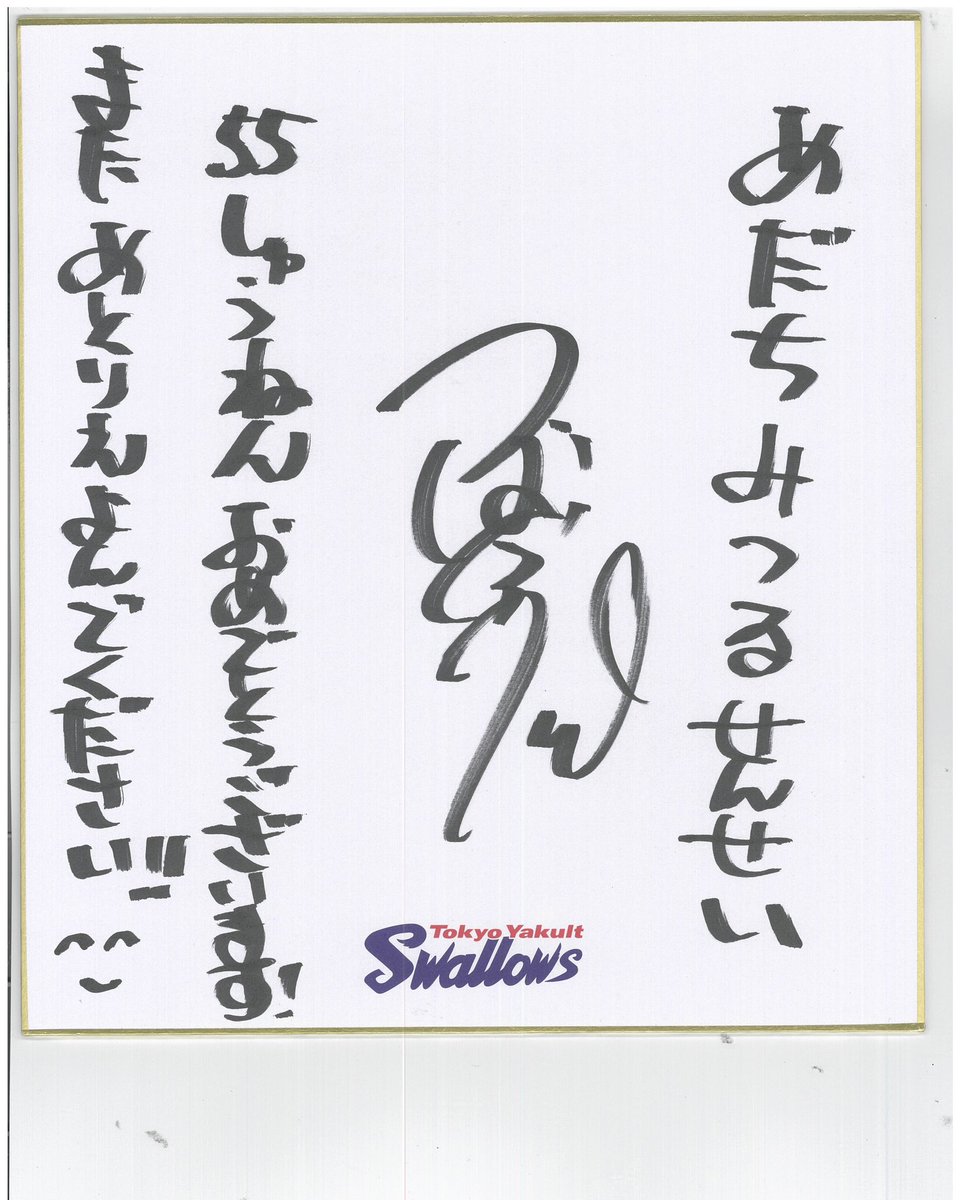 あだちみつるせんせい
つば九郎
55しゅうねんおめでとうございます!
またあとりえよんでください!!!
Tokyo Yakult
Swallows